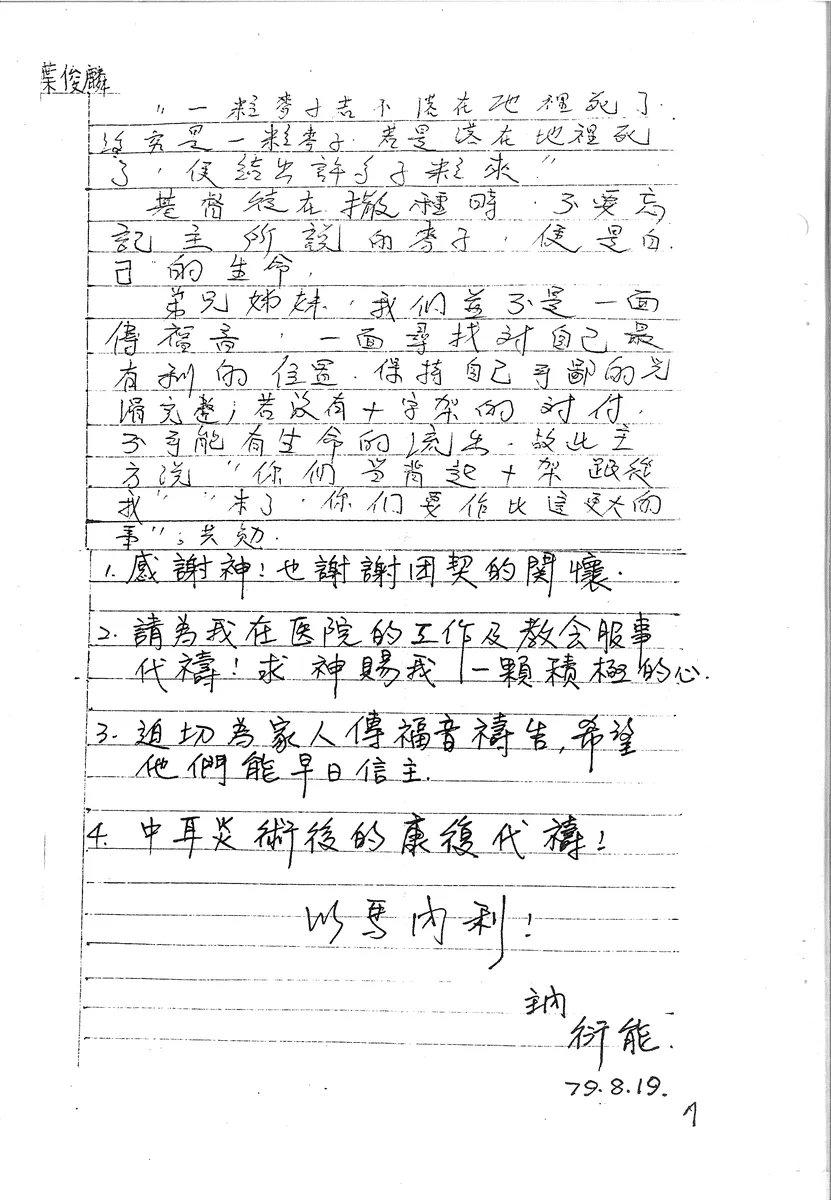 葉俊麟
"一粒麥子若不落在地裡死了.
終究是一粒麥子.若是落在地裡死
了,便結出許多子粒來"
基督徒在撒種時.不要忘
記主所說的麥子,便是自
己的生命,
弟兄姊妹,我们並不是一面
傳福音,一面尋找对自己最
有利的位置.保持自己可鄙的光
滑完整;若没有十字架的对付.
不可能有生命的流出.故此主
方说"你们当背起十架跟從
我" "末了,你们要作比這更大的
事";共勉.
1.感謝神!也謝謝团契的関懷.
2.請為我在医院的工作及教会服事
代禱!求神賜我一顆積極的心.
3.迫切為家人傳福音禱告,希望
他們能早日信主.
4.中耳炎術後的康復代禱!
以馬內利!
主內
衍能.
79.8.19.
7